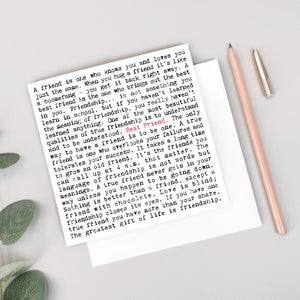 A friend is one who knows you and loves you
just the same. When you hug a friend it's like
a boomerang - you get it back right away. A
best friend is the one who brings out the best
in you. Friendship... is not something you
learn in school, but if you haven't learned
the meaning of friendship, you really haven't
learned anything. One of the most beautiful
qualities of true friendship is to understand
and to be understood. Best Friend. The only
way to have a friend is to be one. A true
friend is one who overlooks your failures and
tolerates your success! It takes a long time
to grow an old friend. It's the friends you
can call up at 4 a.m. that matter. The
language of friendship is not words but
meanings. A true friend never gets in your
way unless you happen to be going down.
Nothing is better than a friend, except a
friend with chocolate. Love is blind;
friendship closes its eyes. If you have one
true friend you have more than your share.
The greatest gift of life is friendship.